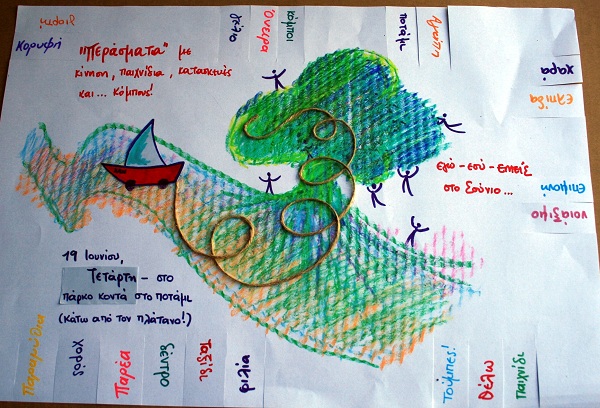 γιορτή
Κορυφή
φύλο
κόμποι
Όνειρα
ποτάμι
Αγάπη
"Περάσματα" με
κίνηση, παιχνίδια, κατασκευές
και... κόμπους!
χαρά
ελπίδα
επιμονή
νοιάξιμο
εγώ - εσύ - εμείς
στο ξούνιο...
19 Ιουνίου,
Τετάρτη - στο
πάρκο κοντά στο ποτάμι
(Κάτω από τον πλάτανο!)
Παραμύθια
χορός
Παρέα
δέντρο
Ταξίδι
φιλία
Τούμπες!
Θέλω
παιχνίδι